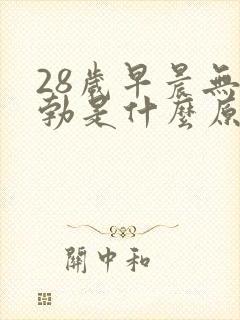 28歲早晨無
勃是什麼原
關中和